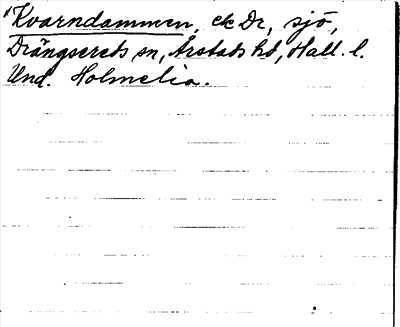 Kvarndammen, ek Dr, sjö,
Drängsereds sn, Årstads hd, Hall. l.
Und. Holmelia.